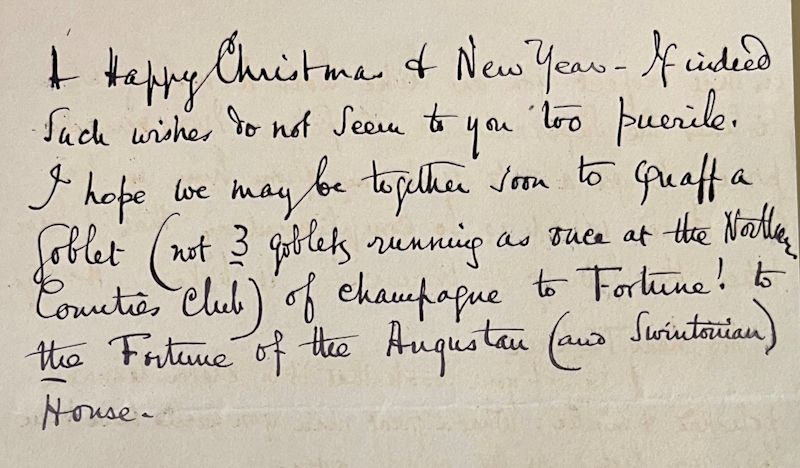 A Happy Christmas & New Year - If indeed
such wishes do not seem to you too puerile.
I hope we may be together soon to quaff a
goblet (not 3 goblets running as once at the Northern
Counties Club) of champagne to Fortune! to
the Fortune of the Augustan (and Swintonian)
House.